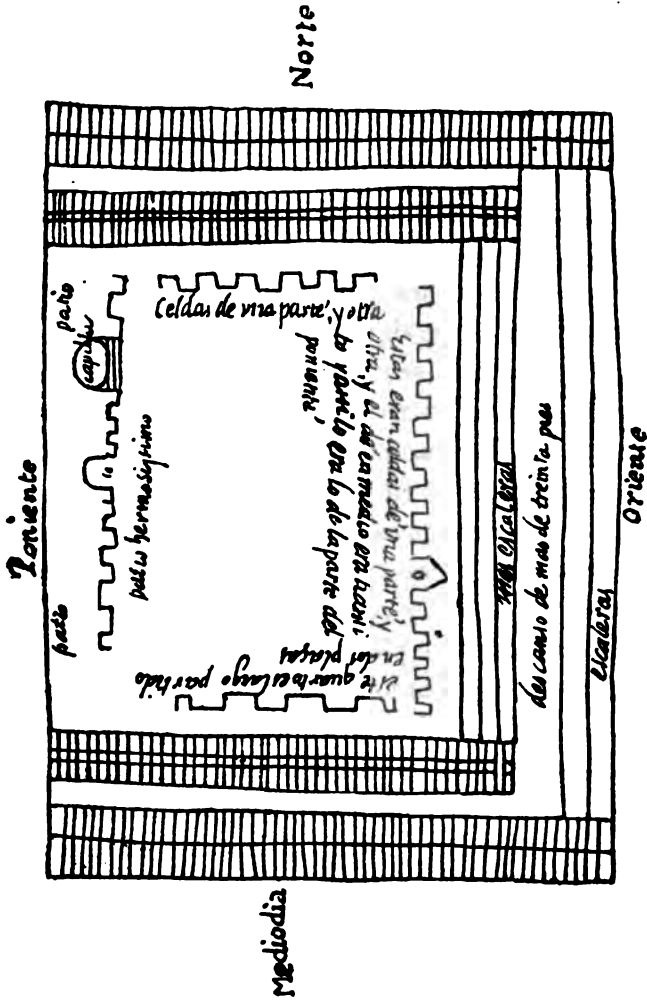 Norte
Poniente
patio
capilla
patio
patio hermosissimo
Celdas de vna parte, y de
Estas eran celdas de vna parte, y
otra, y el de en medio era
lo era lo de la parte del
poniente
este quarto es largo partido
en dos plaças
mas escaleras
descanso de mas de treinta pies
escaleras
Oriente
Mediodia